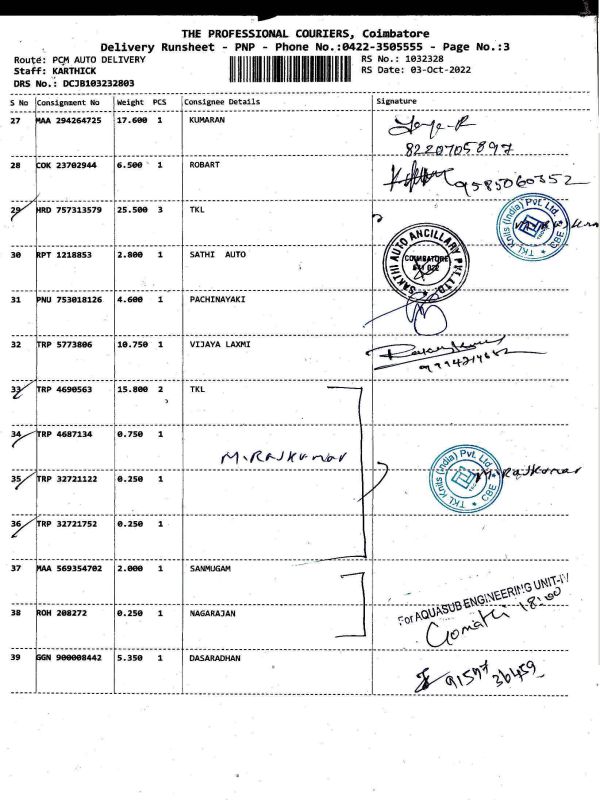 THE PROFESSIONAL COURIERS, Coimbatore
Delivery Runsheet - PNP - Phone No.:0422-3505555 - Page No.:3
Route: PCM AUTO DELIVERY RS No.: 1032328
Staff: KARTHICK RS Date: 03-Oct-2022
DRS No.: DCJB103232803
S No Consignment No Weight PCS Consignee Details Signature
27 MAA 294264725 17.600 1 KUMARAN
8220705897
28 COK 23702944 6.500 1 ROBART
9585060352
29 HRD 757313579 25.500 3 TKL
TKL Knits (India) Pvt Ltd. * CBE *
30 RPT 1218853 2.800 1 SATHI AUTO
SAKTHI AUTO ANCILLARY PVT. LTD.
COIMBATORE
641 022
31 PNU 753018126 4.600 1 PACHINAYAKI
32 TRP 5773806 10.750 1 VIJAYA LAXMI
33 TRP 4690563 15.800 2 TKL
34 TRP 4687134 0.750 1
M.RAJKumar
TKL Knits (India) Pvt Ltd. * CBE *
M.RAJKumar
35 TRP 32721122 0.250 1
36 TRP 32721752 0.250 1
37 MAA 569354702 2.000 1 SANMUGAM
For AQUASUB ENGINEERING UNIT-IV
38 ROH 208272 0.250 1 NAGARAJAN
Gomathi 18:00
39 GGN 900008442 5.350 1 DASARADHAN
91597
36459